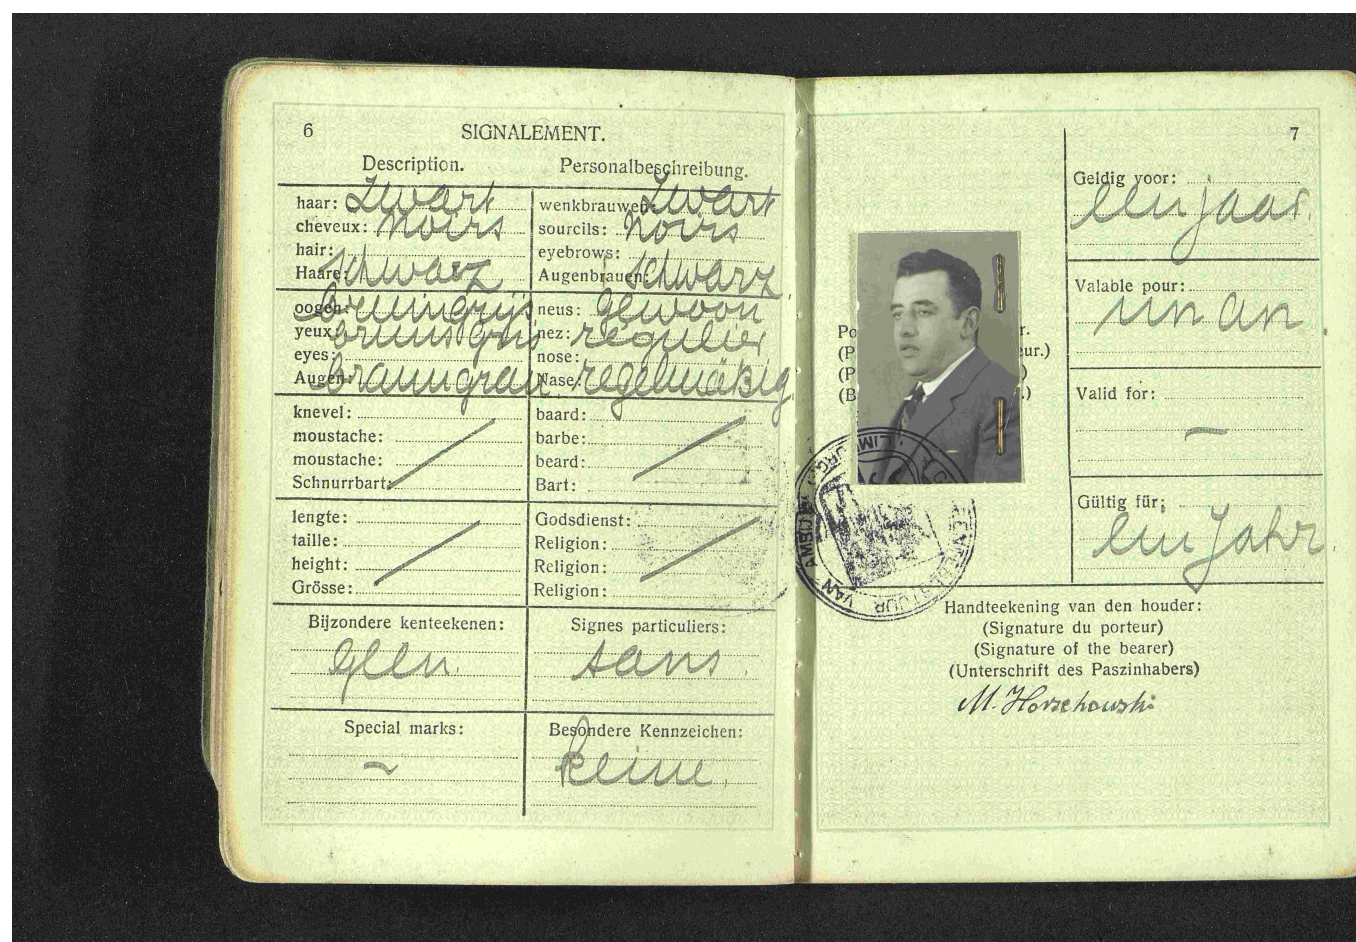 6
SIGNALEMENT.
Description. Personalbeschreibung.
haar: Zwart
cheveux: noirs
hair:
Haare: schwarz
wenkbrauwen: Zwart
sourcils: noirs
eyebrows:
Augenbrauen: schwarz
oogen: bruingrijs
yeux: bruns gris
eyes:
Augen: braungrau
neus: gewoon
nez: régulier
nose:
Nase: regelmäßig
knevel:
moustache:
moustache:
Schnurrbart:
baard:
barbe:
beard:
Bart:
lengte:
taille:
height:
Grösse:
Godsdienst:
Religion:
Religion:
Religion:
Bijzondere kenteekenen:
geen.
Signes particuliers:
sans.
Special marks:
Besondere Kennzeichen:
keine.
7
Geldig voor:
een jaar.
Valable pour:
un an.
Valid for:
Gültig für:
ein Jahr.
Po r.
(P eur.)
(P )
(B .)
VAN AMSB
Handteekening van den houder:
(Signature du porteur)
(Signature of the bearer)
(Unterschrift des Paszinhabers)
M. Horszhowski